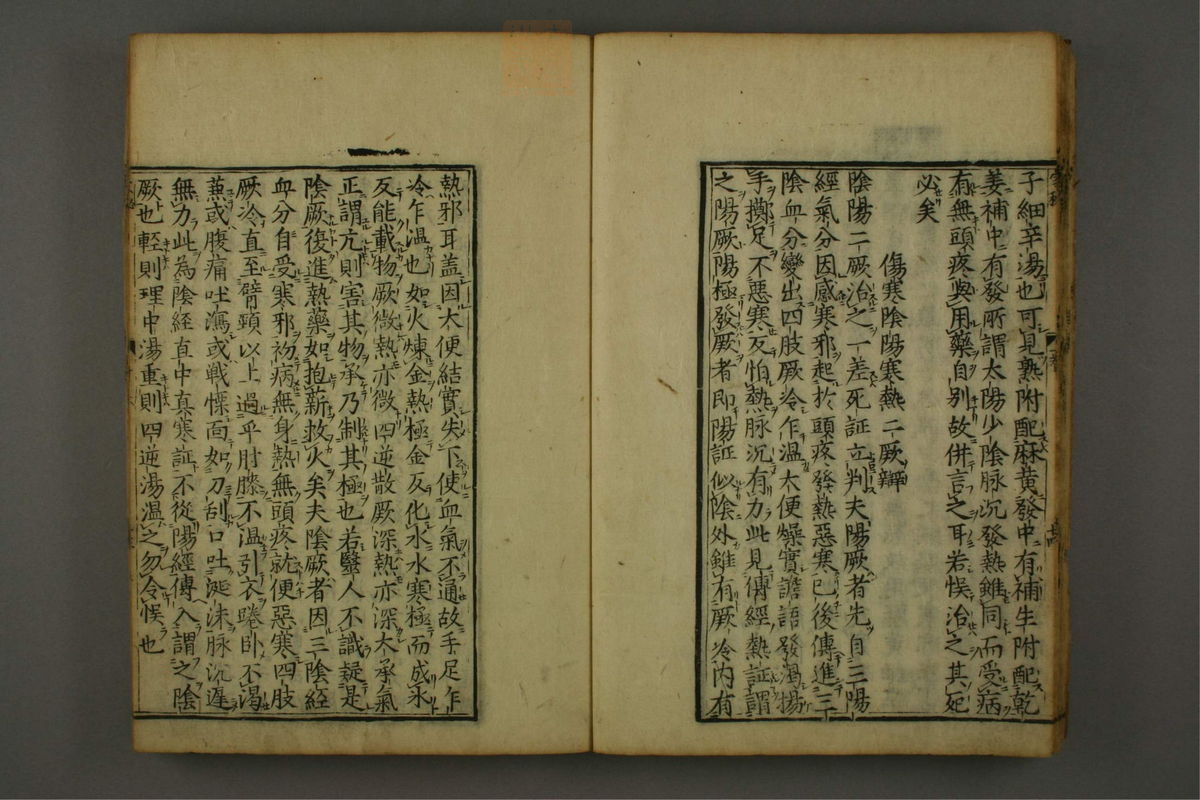 子細辛湯也可見熟附配麻黄發中有補生附配乾
姜補中有發所謂太陽少陰脉沉發熱雖同而受病
有無頭疼與用藥自別故併言之耳若悞治之其死
必矣
傷寒陰陽寒熱二厥辯
陰陽二厥治之一差死証立判夫陽厥者先自三陽
經氣分因感寒邪起於頭疼發熱惡寒已後傳進三
陰血分變出四肢厥冷乍温大便燥實譫語發渴揚
手擲足不惡寒反怕熱脉沉有力此見傳經熱証謂
之陽厥陽極發厥者即陽証似陰外雖有厥冷内有
熱邪耳盖因大便結實失下使血氣不通故手足乍
冷乍温也如火煉金熱極金反化水水寒極而成氷
反能載物厥微熱亦微四逆散厥深熱亦深大承氣
正謂亢則害其物承乃制其極也若毉人不識疑是
陰厥復進熱藥如抱薪救火矣夫陰厥者因三陰經
血分自受寒邪初病無身熱無頭疼就便惡寒四肢
厥冷直至臂頸以上過乎肘膝不温引衣踡卧不渴
蒸或腹痛吐瀉或戰慄面如刀刮口吐涎沫脉沉遲
無力此為陰経直中真寒証不從陽經傳入謂之陰
厥也輕則理中湯重則四逆湯温之勿令悞也